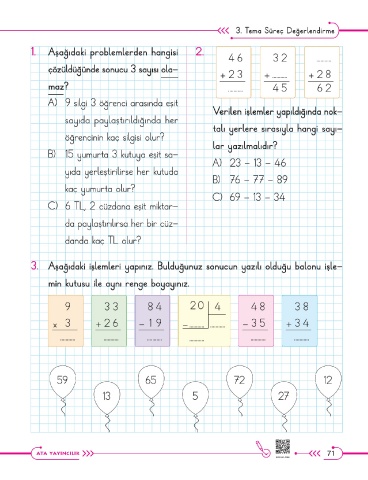 3. Tema Süreç Değerlendirme
1. Aşağıdaki problemlerden hangisi
çözüldüğünde sonucu 3 sayısı ola-
maz?
A) 9 silgi 3 öğrenci arasında eşit
sayıda paylaştırıldığında her
öğrencinin kaç silgisi olur?
B) 15 yumurta 3 kutuya eşit sa-
yıda yerleştirilirse her kutuda
kaç yumurta olur?
C) 6 TL, 2 cüzdana eşit miktar-
da paylaştırılırsa her bir cüz-
danda kaç TL olur?
2.
46 32 ......
+ 23 + ...... + 28
...... 45 62
Verilen işlemler yapıldığında nok-
talı yerlere sırasıyla hangi sayı-
lar yazılmalıdır?
A) 23 – 13 – 46
B) 76 – 77 – 89
C) 69 – 13 – 34
3. Aşağıdaki işlemleri yapınız. Bulduğunuz sonucun yazılı olduğu balonu işle-
min kutusu ile aynı renge boyayınız.
9 33 84 20 4 48 38
x 3 + 26 - 19 - ...... ...... - 35 + 34
...... ...... ...... ...... ...... ......
59 65 72 12
13 5 27
ATA YAYINCILIK
71